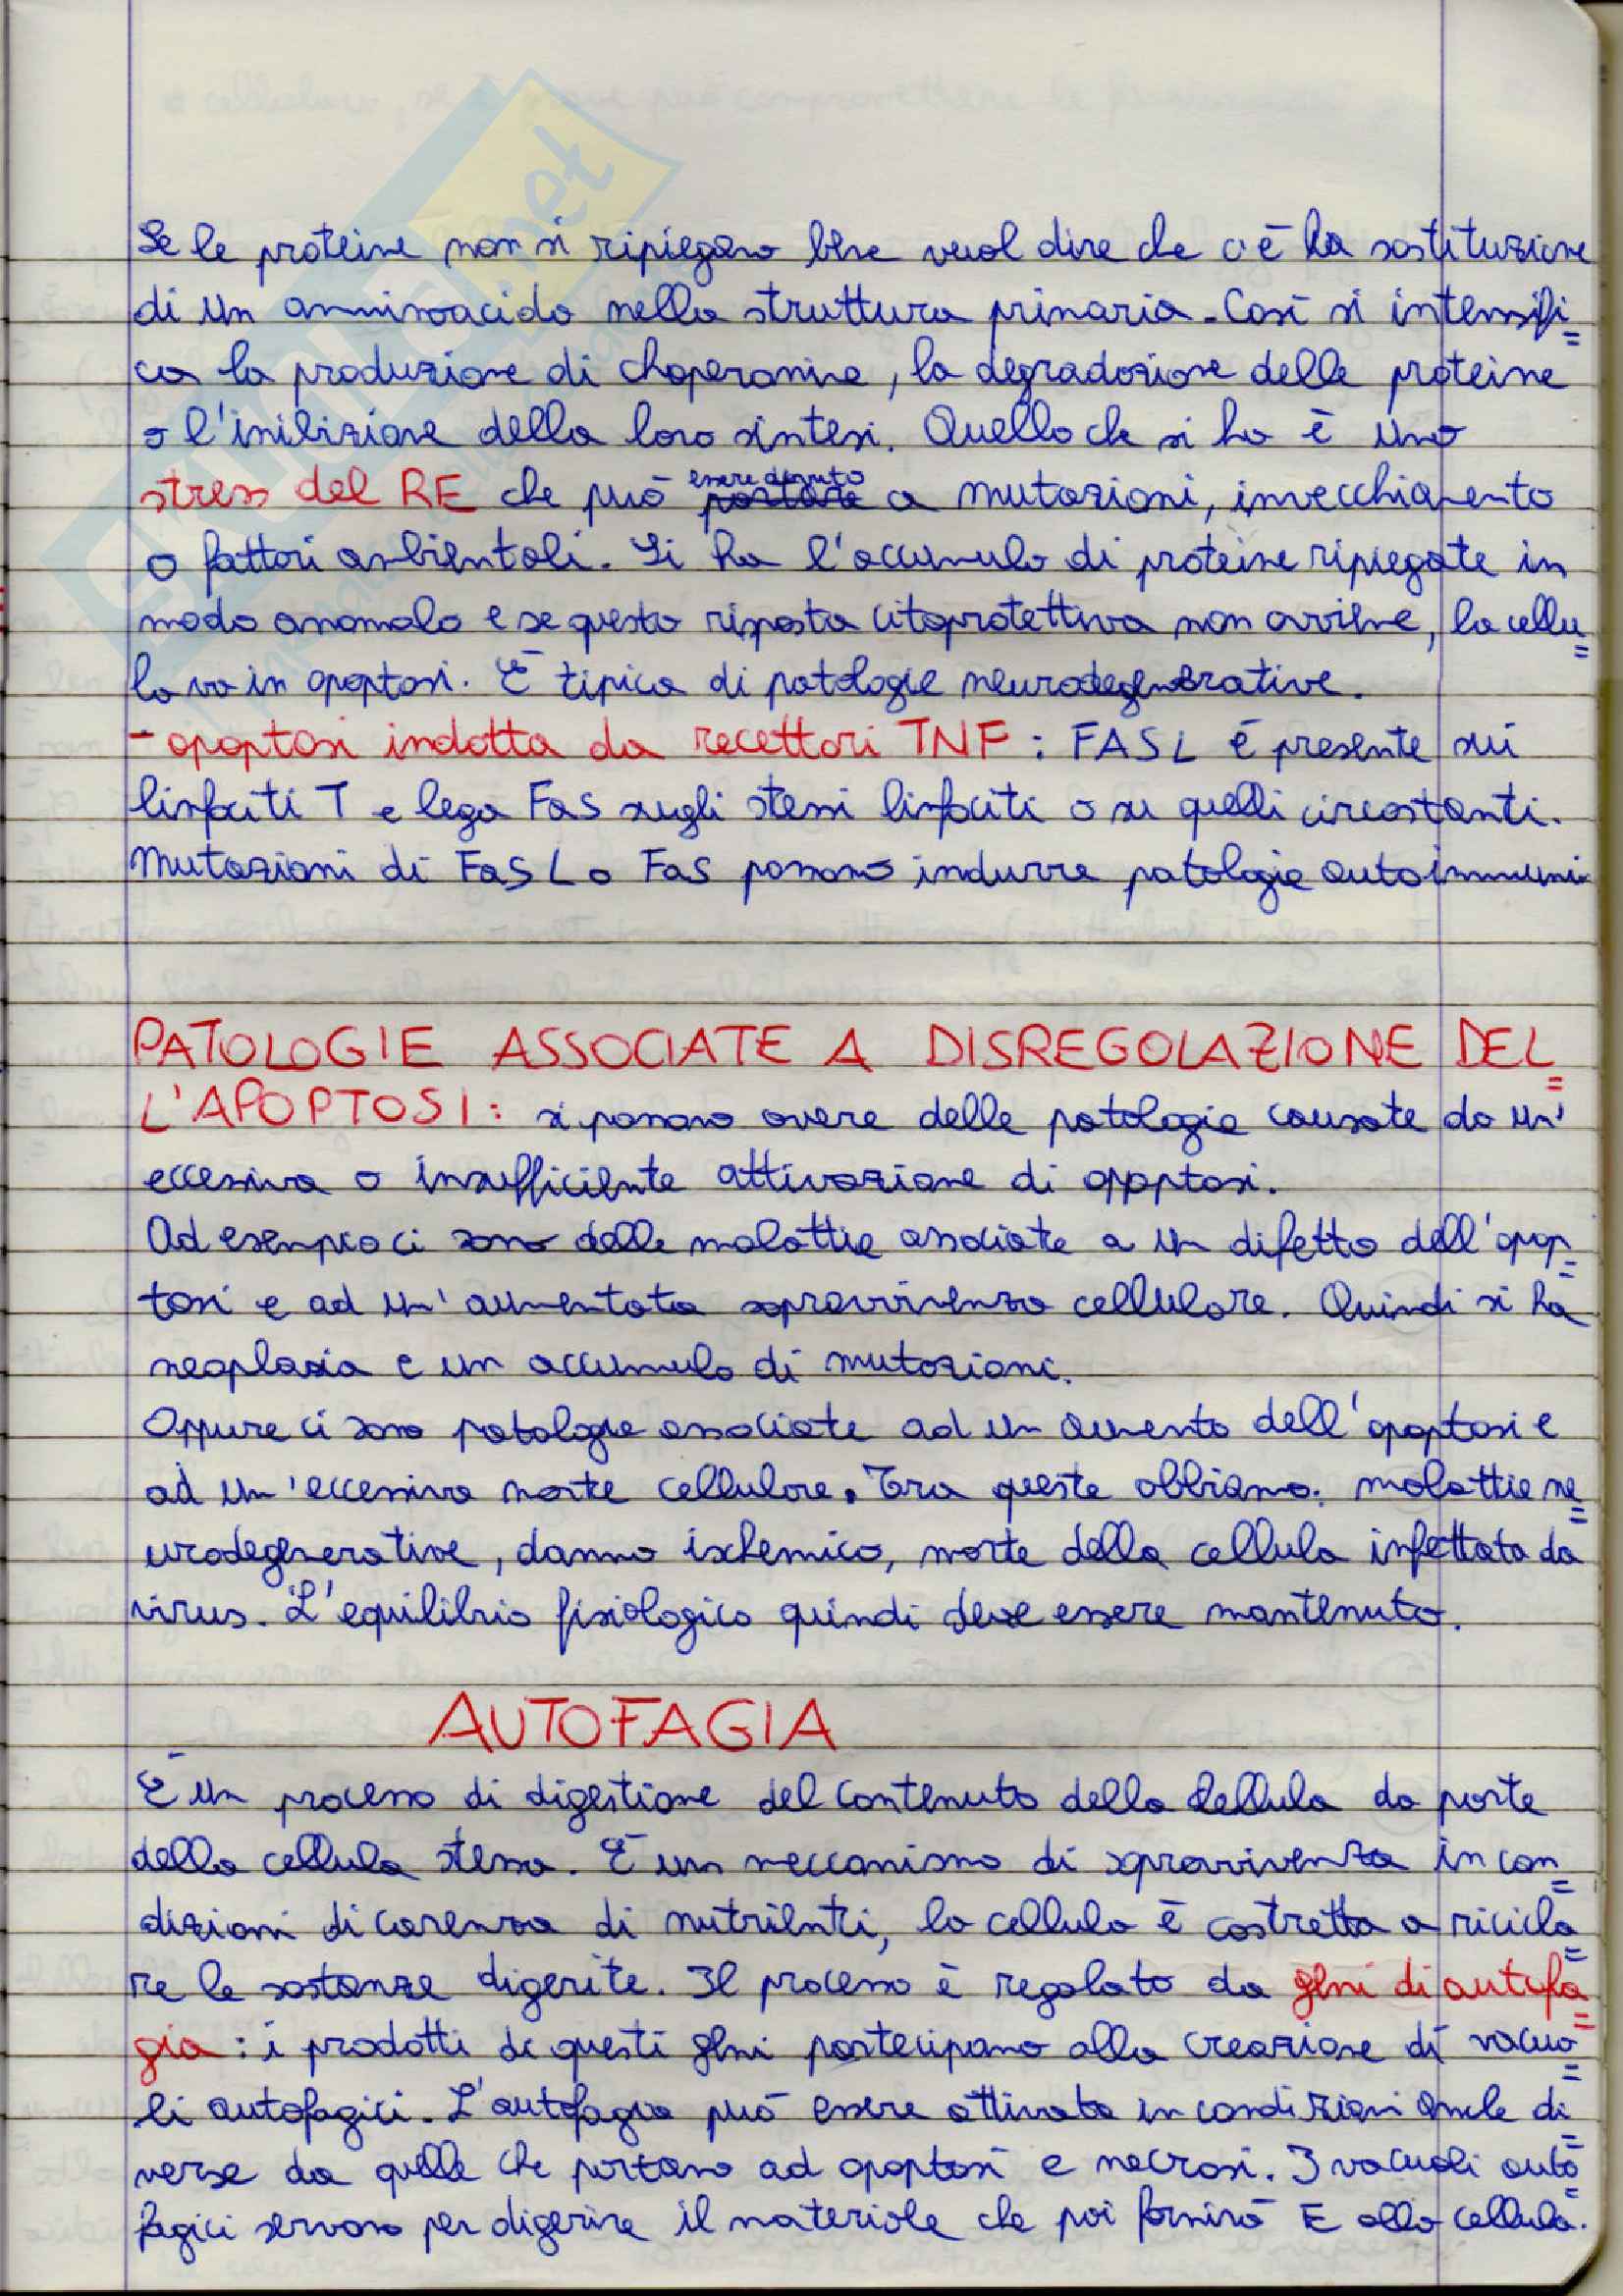 Se le proteine non si ripiegano bene vuol dire che c'è la sostituzione
di un amminoacido nella struttura primaria. Così si intensifi=
ca la produzione di chaperonine, la degradazione delle proteine
o l'inibizione della loro sintesi. Quello che si ha è uno
stress del RE che può essere dovuto a mutazioni, invecchiamento
o fattori ambientali. Si ha l'accumulo di proteine ripiegate in
modo anomalo e se questa risposta citoprotettiva non avviene, la cellu=
la va in apoptosi. È tipica di patologie neurodegenerative.
- apoptosi indotta da recettori TNF: FASL è presente sui
linfociti T e lega Fas sugli stessi linfociti o su quelli circostanti.
Mutazioni di FasL o Fas possono indurre patologie autoimmuni
PATOLOGIE ASSOCIATE A DISREGOLAZIONE DEL=
L'APOPTOSI: si possono avere delle patologie causate da un'
eccessiva o insufficiente attivazione di apoptosi.
Ad esempio ci sono delle malattie associate a un difetto dell'apop=
tosi e ad un'aumentata sopravvivenza cellulare. Quindi si ha
neoplasia e un accumulo di mutazioni.
Oppure ci sono patologie associate ad un aumento dell'apoptosi e
ad un'eccessiva morte cellulare. Tra queste abbiamo: malattie ne=
urodegenerative, danno ischemico, morte della cellula infettata da
virus. L'equilibrio fisiologico quindi deve essere mantenuto.
AUTOFAGIA
È un processo di digestione del contenuto della cellula da parte
della cellula stessa. È un meccanismo di sopravvivenza in con=
dizioni di carenza di nutrienti, la cellula è costretta a ricicla=
re le sostanze digerite. Il processo è regolato da geni di autofa=
gia: i prodotti di questi geni partecipano alla creazione di vacuo=
li autofagici. L'autofagia può essere attivata in condizioni anche di=
verse da quelle che portano ad apoptosi e necrosi. I vacuoli auto=
fagici servono per digerire il materiale che poi fornirà E alla cellula.